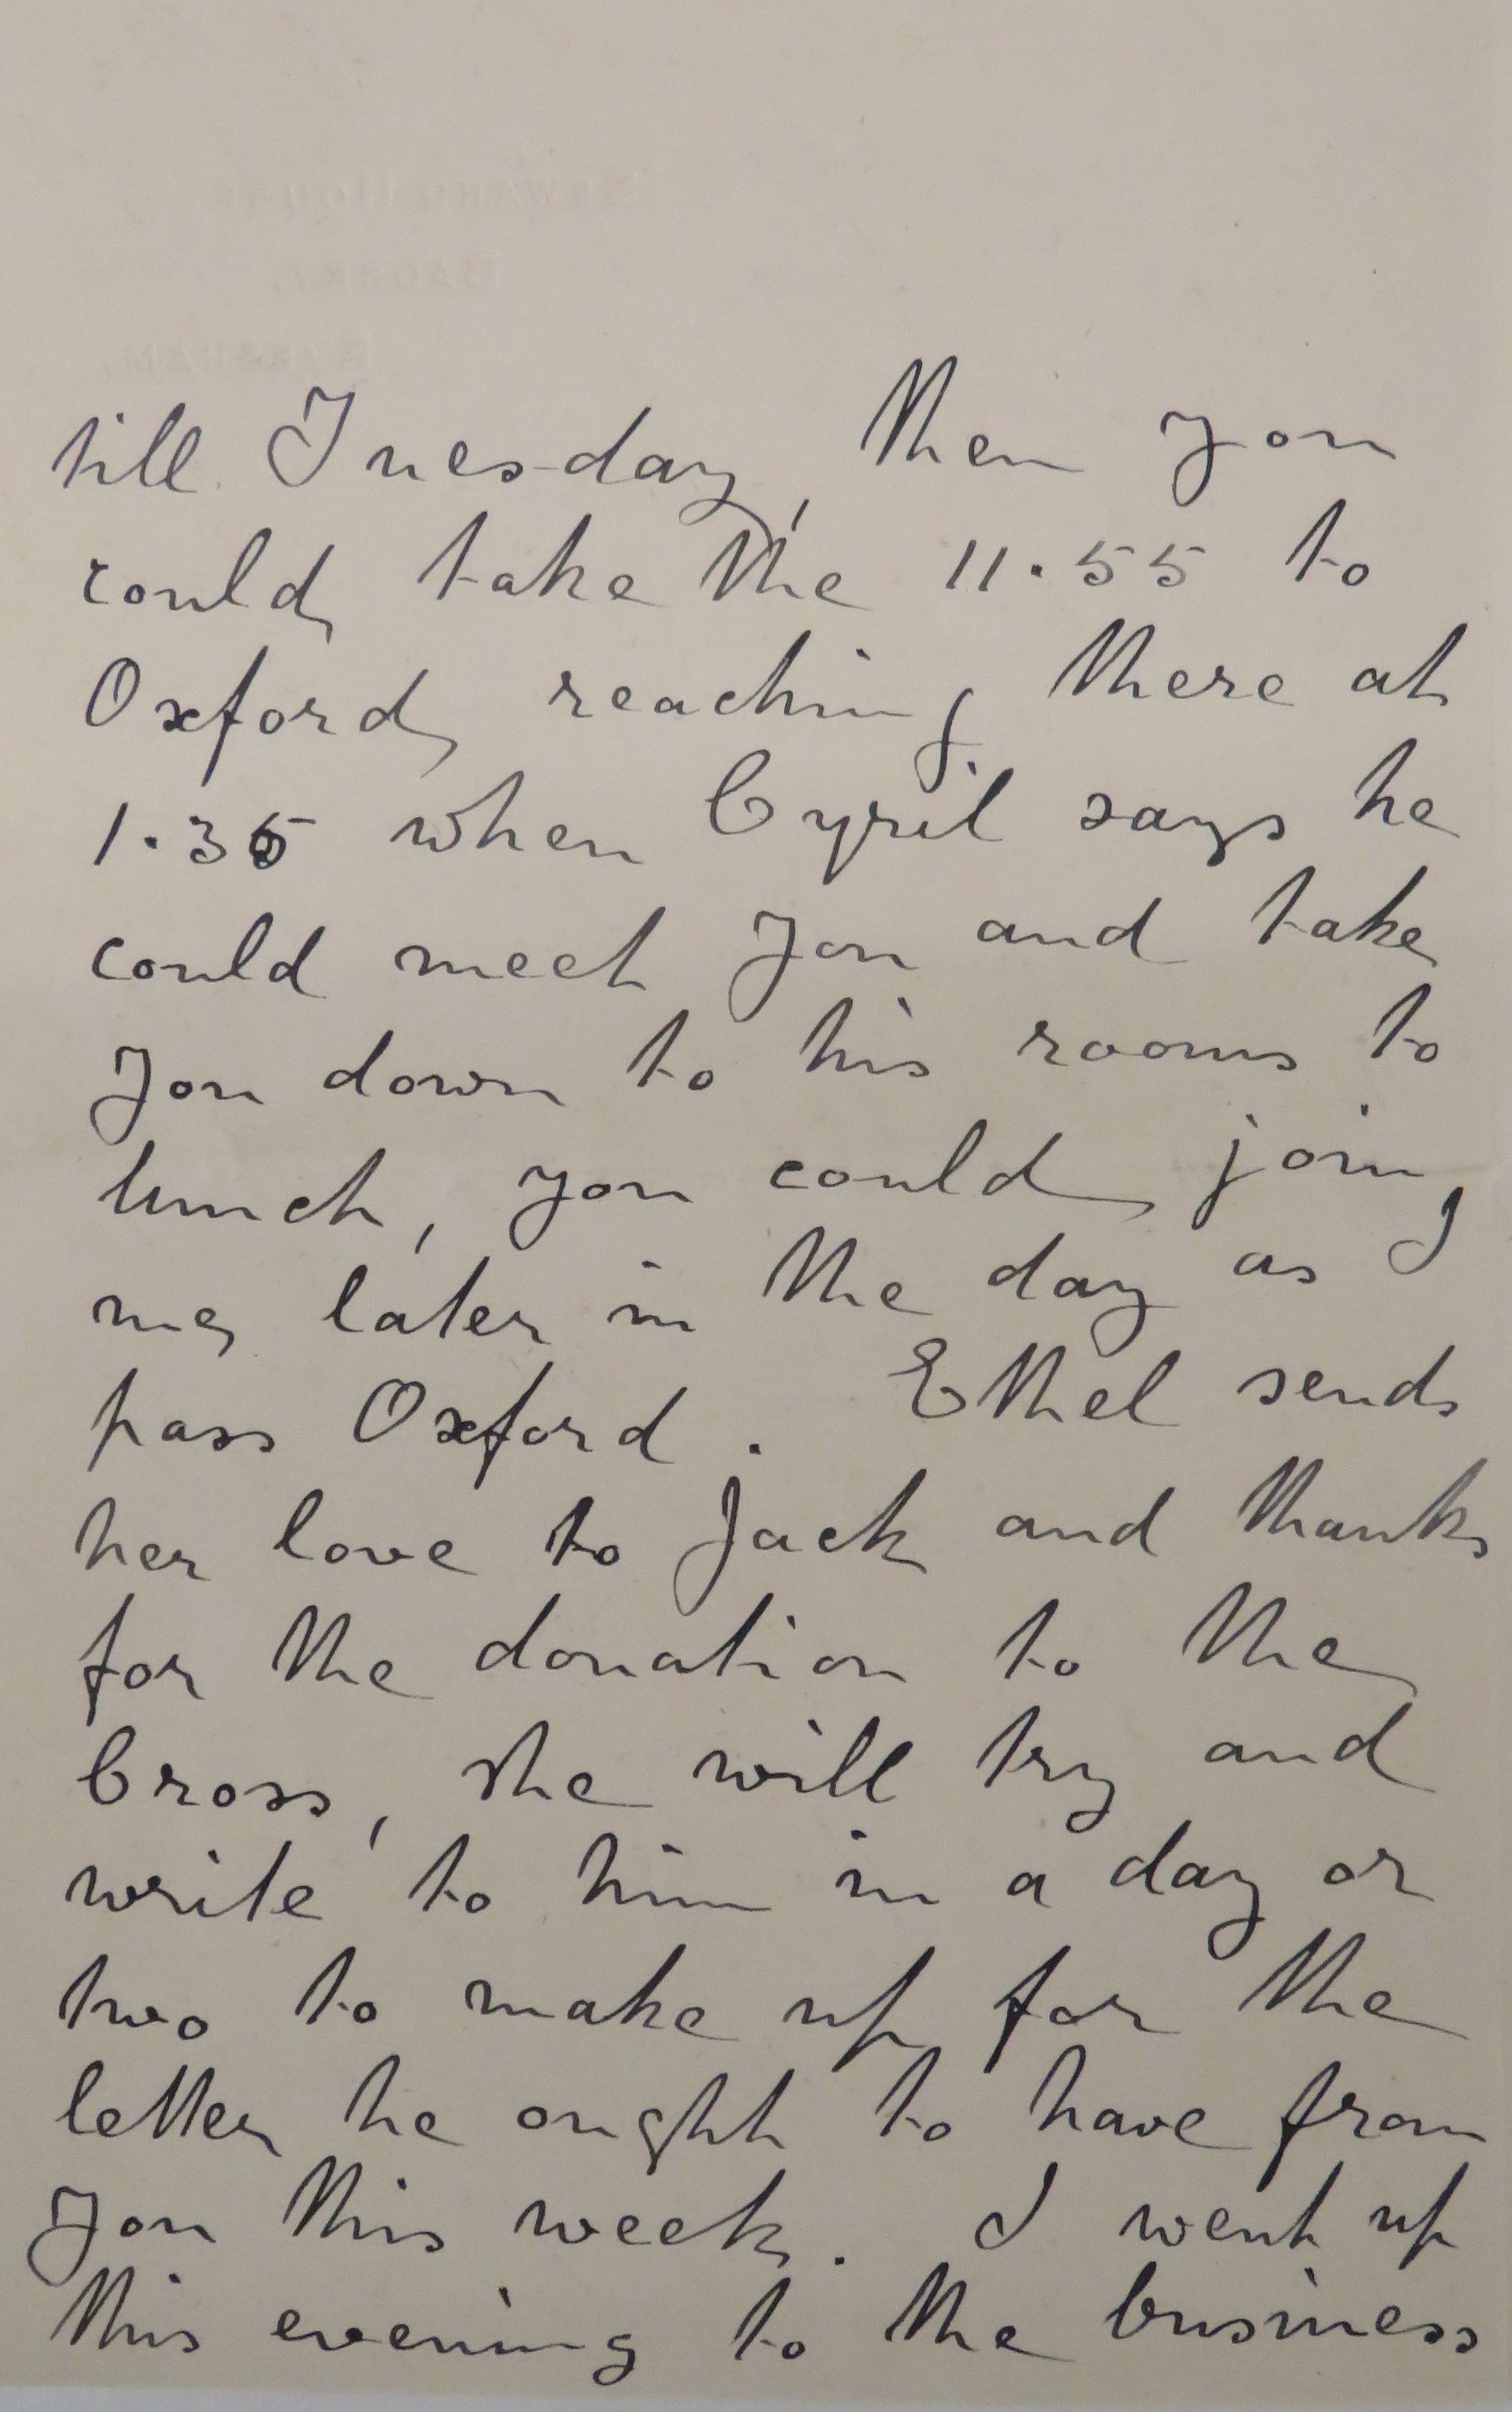 till Tuesday, then you
could take the 11.55 to
Oxford reaching there at
1.35 when Cyril says he
could meet you and take
you down to his rooms to
lunch, you could join
me later in the day as I
pass Oxford. Ethel sends
her love to Jack and thanks
for the donation to the
Cross, she will try and
write to him in a day or
two to make up for the
letter he ought to have from
you this week. I went up
this evening to the business